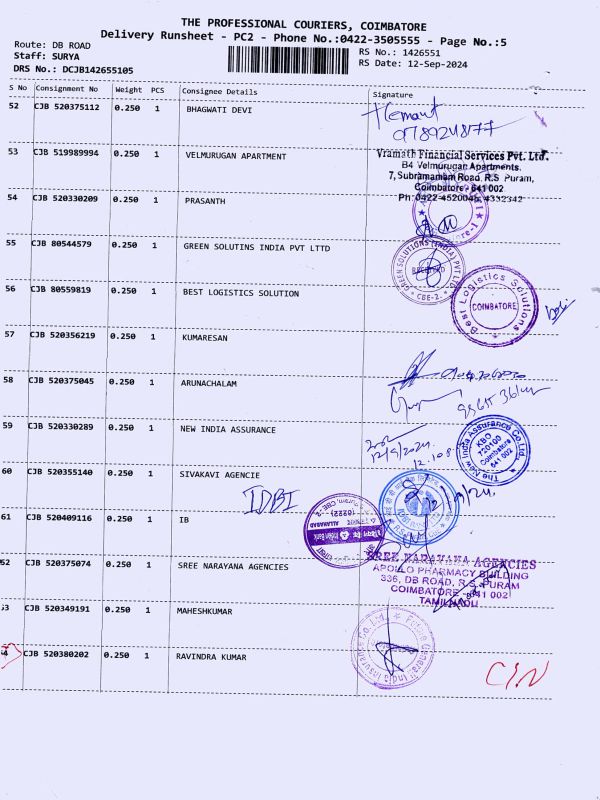 THE PROFESSIONAL COURIERS, COIMBATORE
Delivery Runsheet - PC2 - Phone No.:0422-3505555 - Page No.:5
Route: DB ROAD
Staff: SURYA
DRS No.: DCJB142655105
RS No.: 1426551
RS Date: 12-Sep-2024
S No Consignment No Weight PCS Consignee Details Signature
52 CJB 520375112 0.250 1 BHAGWATI DEVI
Hemant
53 CJB 519989994 0.250 1 VELMURUGAN APARTMENT
Vramath Financial Services Pvt. Ltd.
B4 Velmurugan Apartments.
7, Subramaniam Road, R.S. Puram,
Coimbatore - 641 002
Ph: 0422-4520046, 4332342
54 CJB 520330209 0.250 1 PRASANTH
55 CJB 80544579 0.250 1 GREEN SOLUTINS INDIA PVT LTTD
GREEN SOLUTIONS (INDIA) PVT LTD
RECEIVED
CBE-2.
56 CJB 80559819 0.250 1 BEST LOGISTICS SOLUTION
Best Logistics Solutions
COIMBATORE
57 CJB 520356219 0.250 1 KUMARESAN
58 CJB 520375045 0.250 1 ARUNACHALAM
59 CJB 520330289 0.250 1 NEW INDIA ASSURANCE
12/9/2024
The New India Assurance Co.Ltd.
KBO
720100
Coimbatore
641 002
60 CJB 520355140 0.250 1 SIVAKAVI AGENCIE
IDBI
61 CJB 520409116 0.250 1 IB
Indian Bank
ALLAHABAD
52 CJB 520375074 0.250 1 SREE NARAYANA AGENCIES
SREE NARAYANA AGENCIES
APOLLO PHARMACY BUILDING
336, DB ROAD, R.S. PURAM
COIMBATORE - 641 002
TAMILNADU
53 CJB 520349191 0.250 1 MAHESHKUMAR
Future Generali India Insurance Co. Ltd.
4 CJB 520380202 0.250 1 RAVINDRA KUMAR